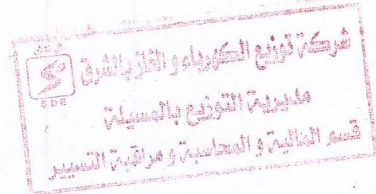 شركة توزيع الكهرباء و الغاز بالشرق
SDE
مديرية التوزيع بالمسيلة
قسم المالية و المحاسبة و مراقبة التسيير